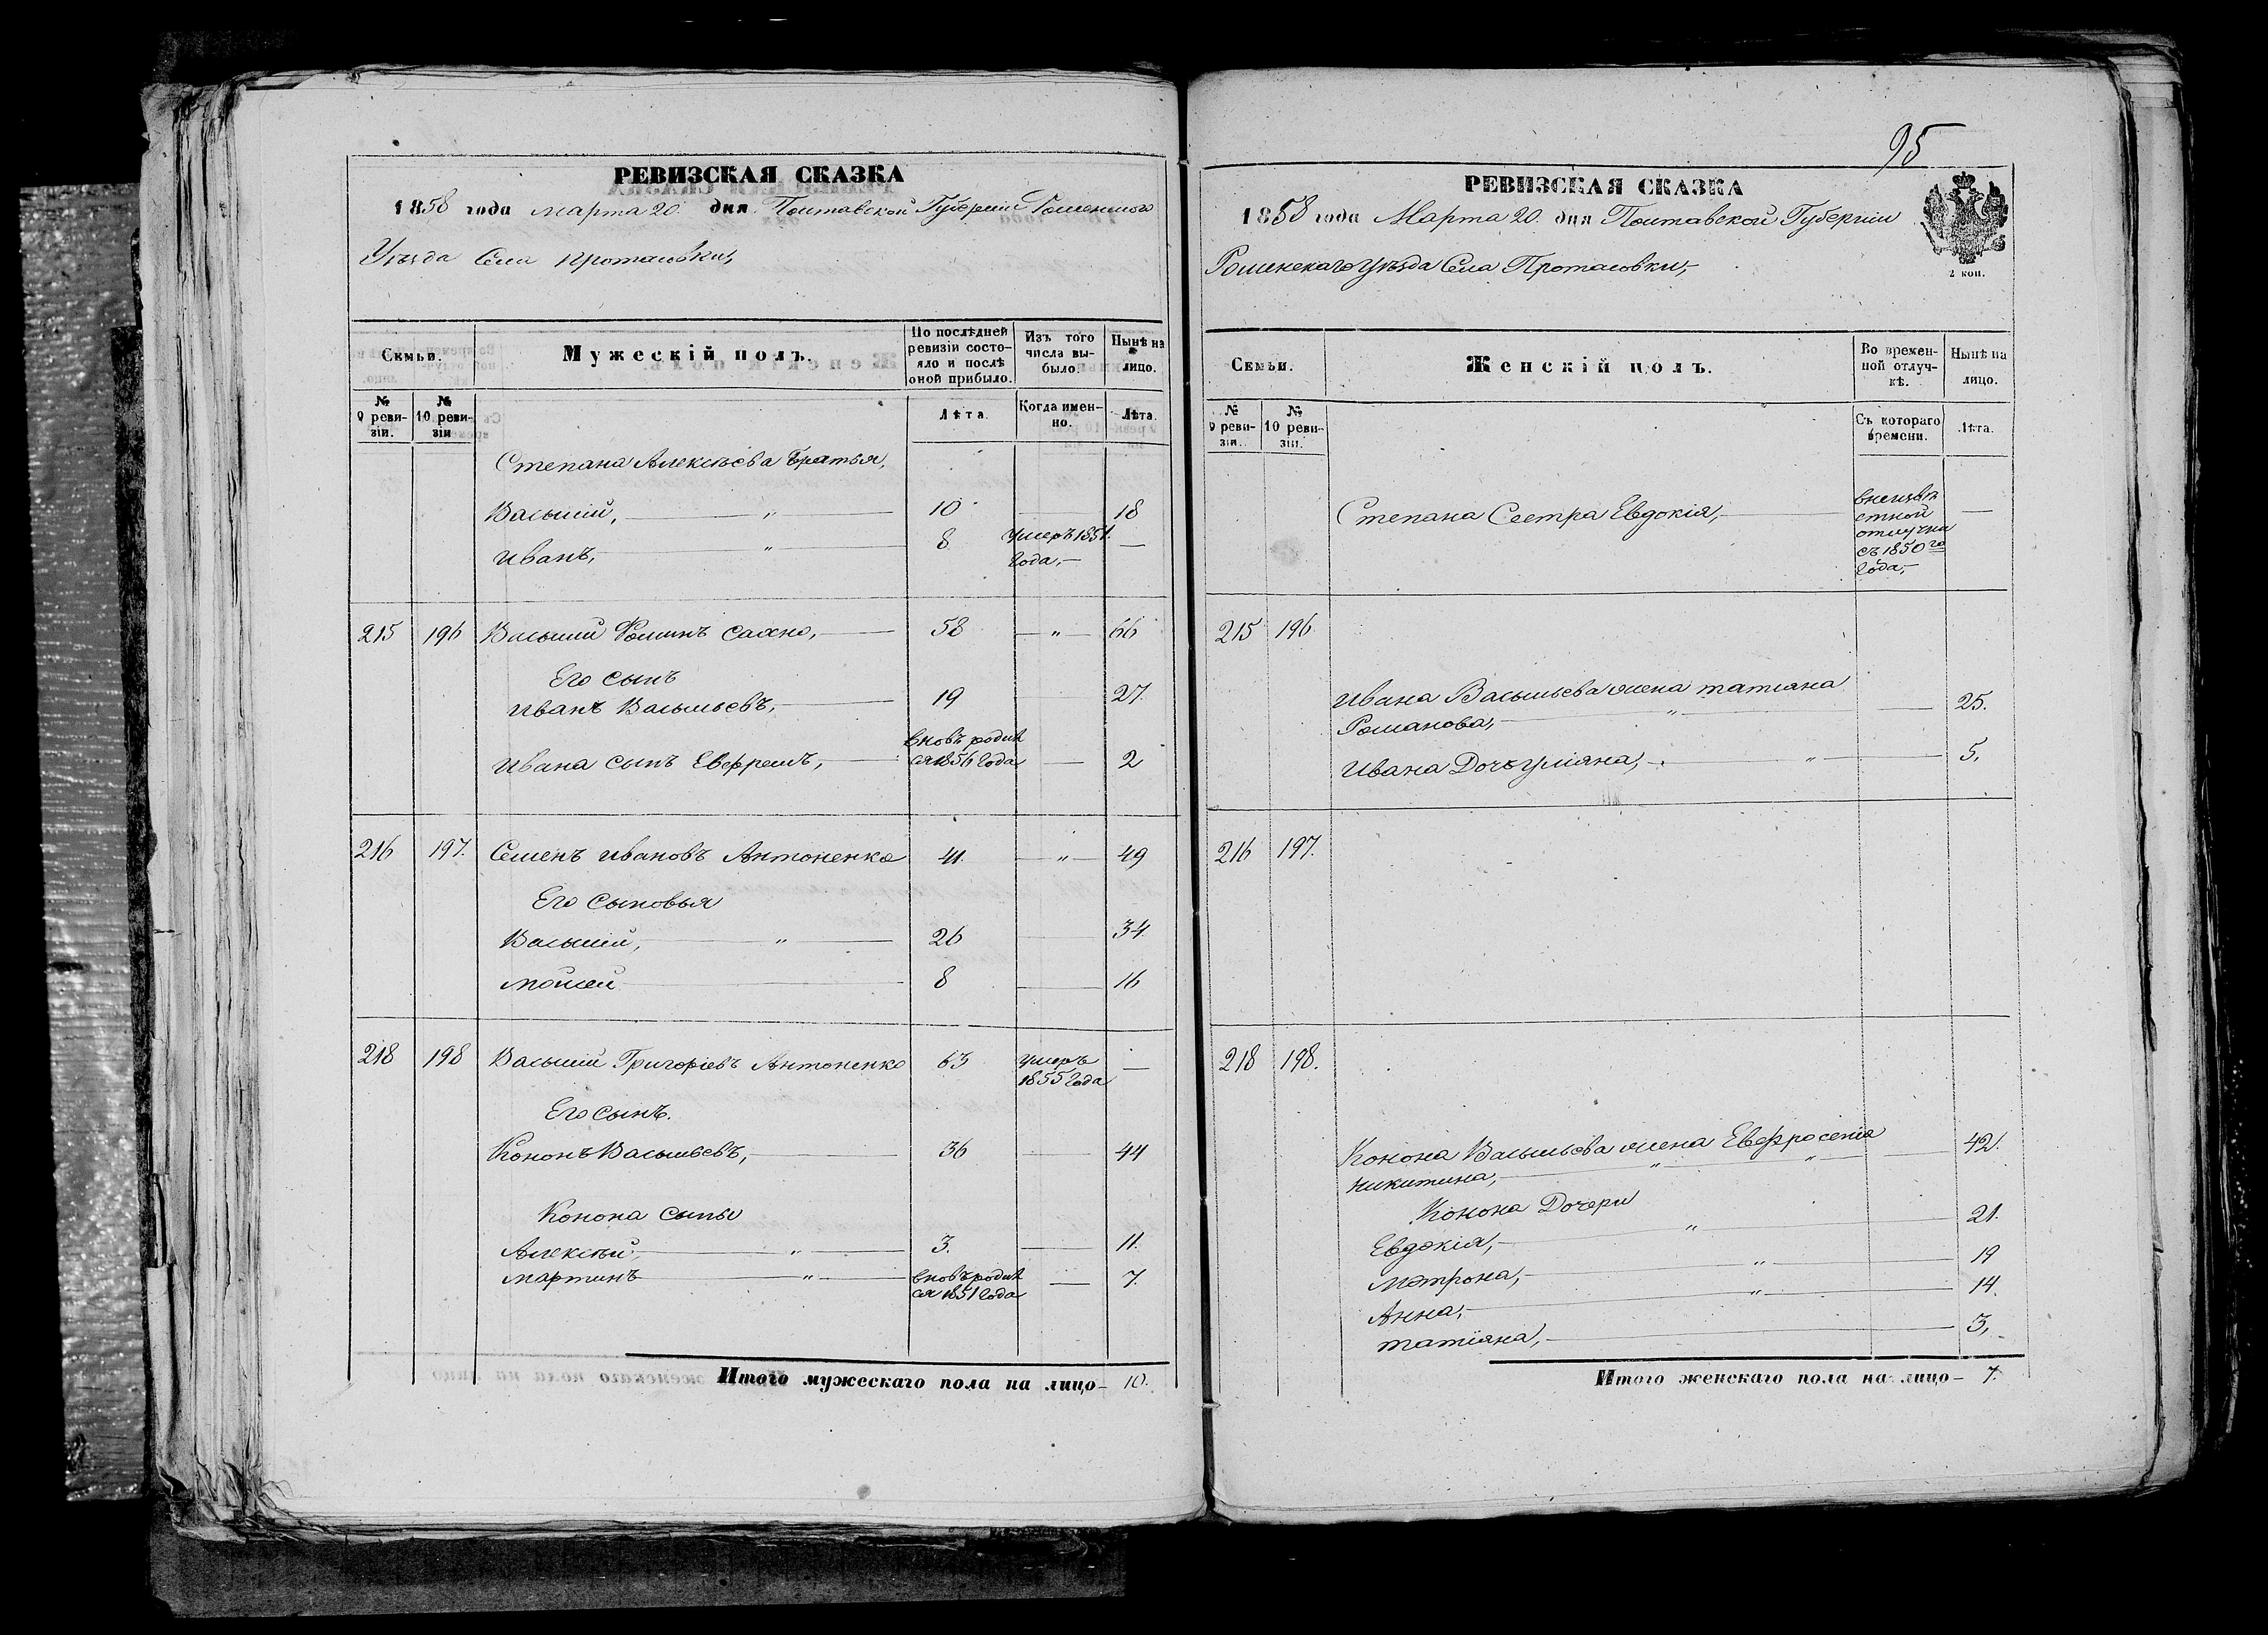 РЕВИЗСКАЯ СКАЗКА
1858 года марта 20. дня Полтавской Губернии Роменского
Уѣзда Села Протасовки,
Семьи. Мужескій полъ. По послѣдней ревизіи состояло и послѣ оной прибыло. Изъ того числа выбыло. Нынѣ на лицо.
№ 9 ревизіи. № 10 ревизіи Лѣта. Когда именно. Лѣта.
Степана Алексѣева Братья,
Василій, — " — 10 — 18
Иванъ, — " — 8 Умеръ 1851. года, — —
215 196 Василий Фоминъ Сахно, — 58 — " — 66
Его сынъ
Иванъ Васильевъ, — 19 — 27.
Ивана сынъ Евфремъ, — вновь родил
ся 1856 года — 2
216 197. Семенъ Ивановъ Антоненко 41. — " — 49
Его Сыновья
Василій, — " — 26 — 34.
Мойсей — 8 — 16
218 198 Василий Григоріевъ Антоненко 63 умеръ
1855 года —
Его сынъ.
Кононъ Васильевъ, — 36 — 44
Конона сыны
Алексѣй — " — 3. — 11.
Мартинъ — " — вновь родил
ся 1851 года — 7.
Итого мужескаго пола на лицо — 10.
95
РЕВИЗСКАЯ СКАЗКА
1858 года Марта 20. дня Полтавской Губернии
Роменскаго Уѣзда Села Протасовки,
2 коп.
Семьи. Женскій полъ. Во временной отлучкѣ. Нынѣ на лицо.
№ 9 ревизіи. № 10 ревизіи. Съ котораго времени. Лѣта.
Степана Сестра Евдокія, —
в неизвѣ
стной
отлучки
съ 1850го
года, —
215 196
Ивана Васильева жена Татіана
Романова, — " — 25.
Ивана Дочь Уліяна, — " — 5.
216 197.
218 198.
Конона Васильева жена Евфросенія
Никитина, — " — " — 42.
Конона Дочери
Евдокія, — " — 21.
Мотрона, — " — 19
Анна, — " — 14.
Татіяна, — 3,
Итого женскаго пола на лицо — 7.